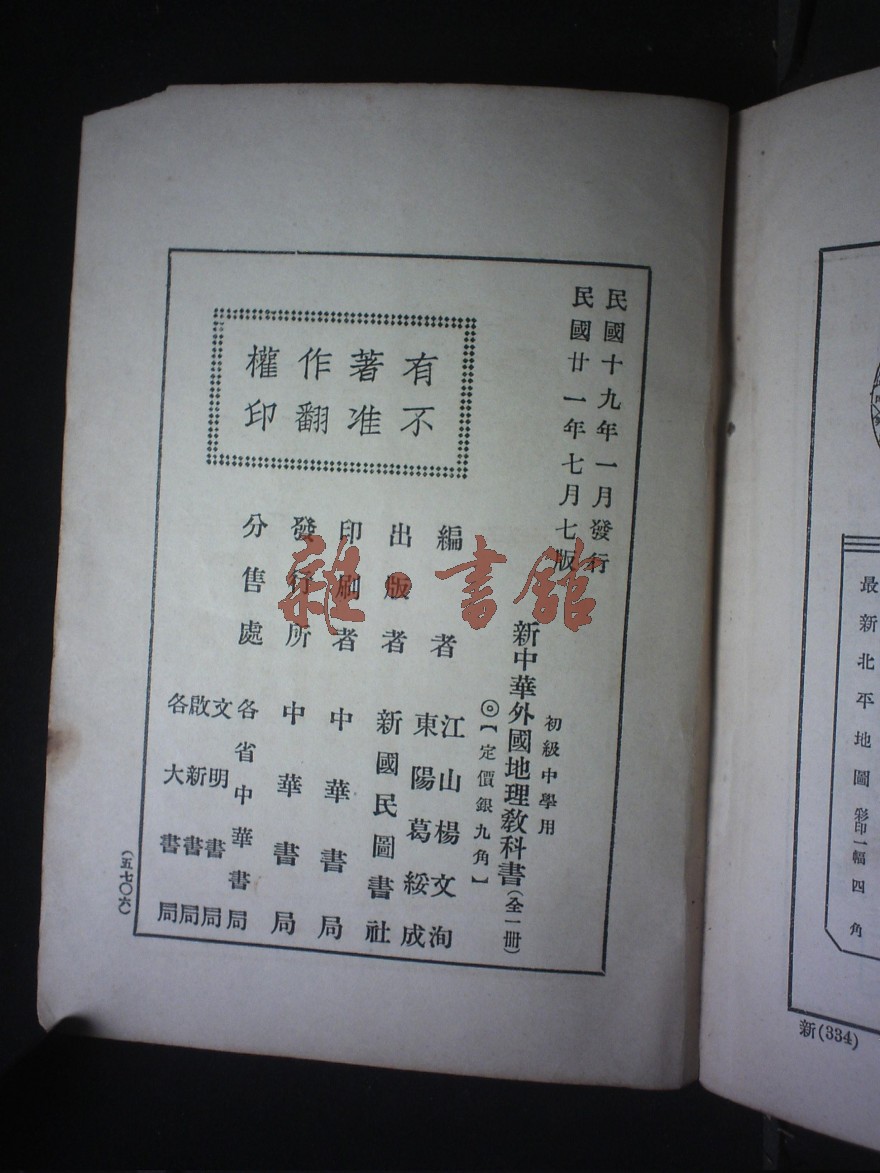 民國十九年一月發行
民國廿一年七月七版
初級中學用
新中華外國地理教科書(全一冊)
◎【定價銀九角】
編者 江山楊文洵
東陽葛綏成
出版者 新國民圖書社
印刷者 中華書局
發行所 中華書局
分售處 各省中華書局
文明書局
啟新書局
各大書局
有著作權
不准翻印
(五七〇六)
雜·書館
最新北平地圖 彩印一幅 四角
新(334)